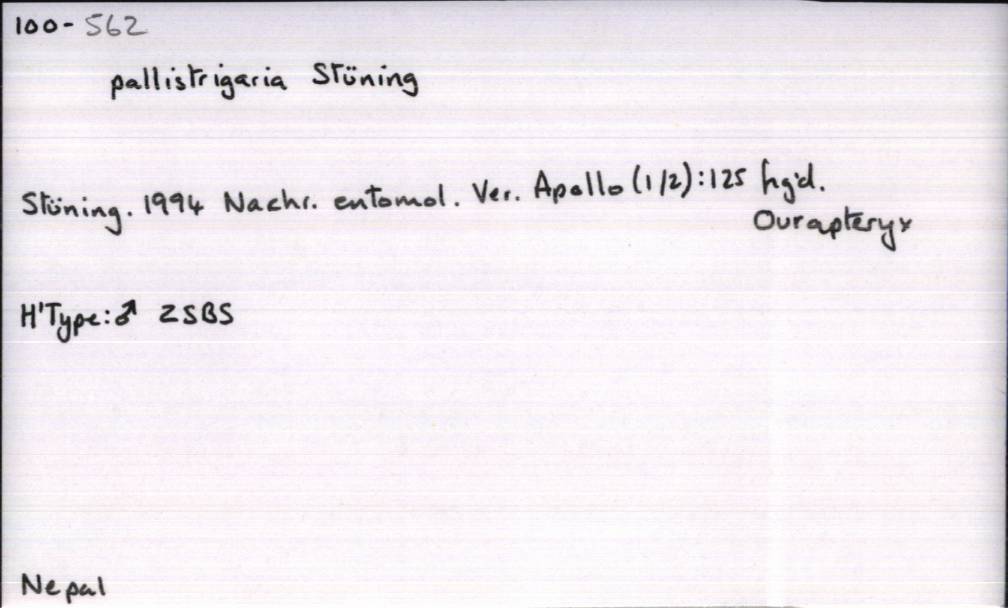 100-562
pallistrigaria Stüning
Stüning. 1994 Nachr. entomol. Ver. Apollo (1/2):125 figd.
Ourapteryx
H'Type:♂ ZSBS
Nepal